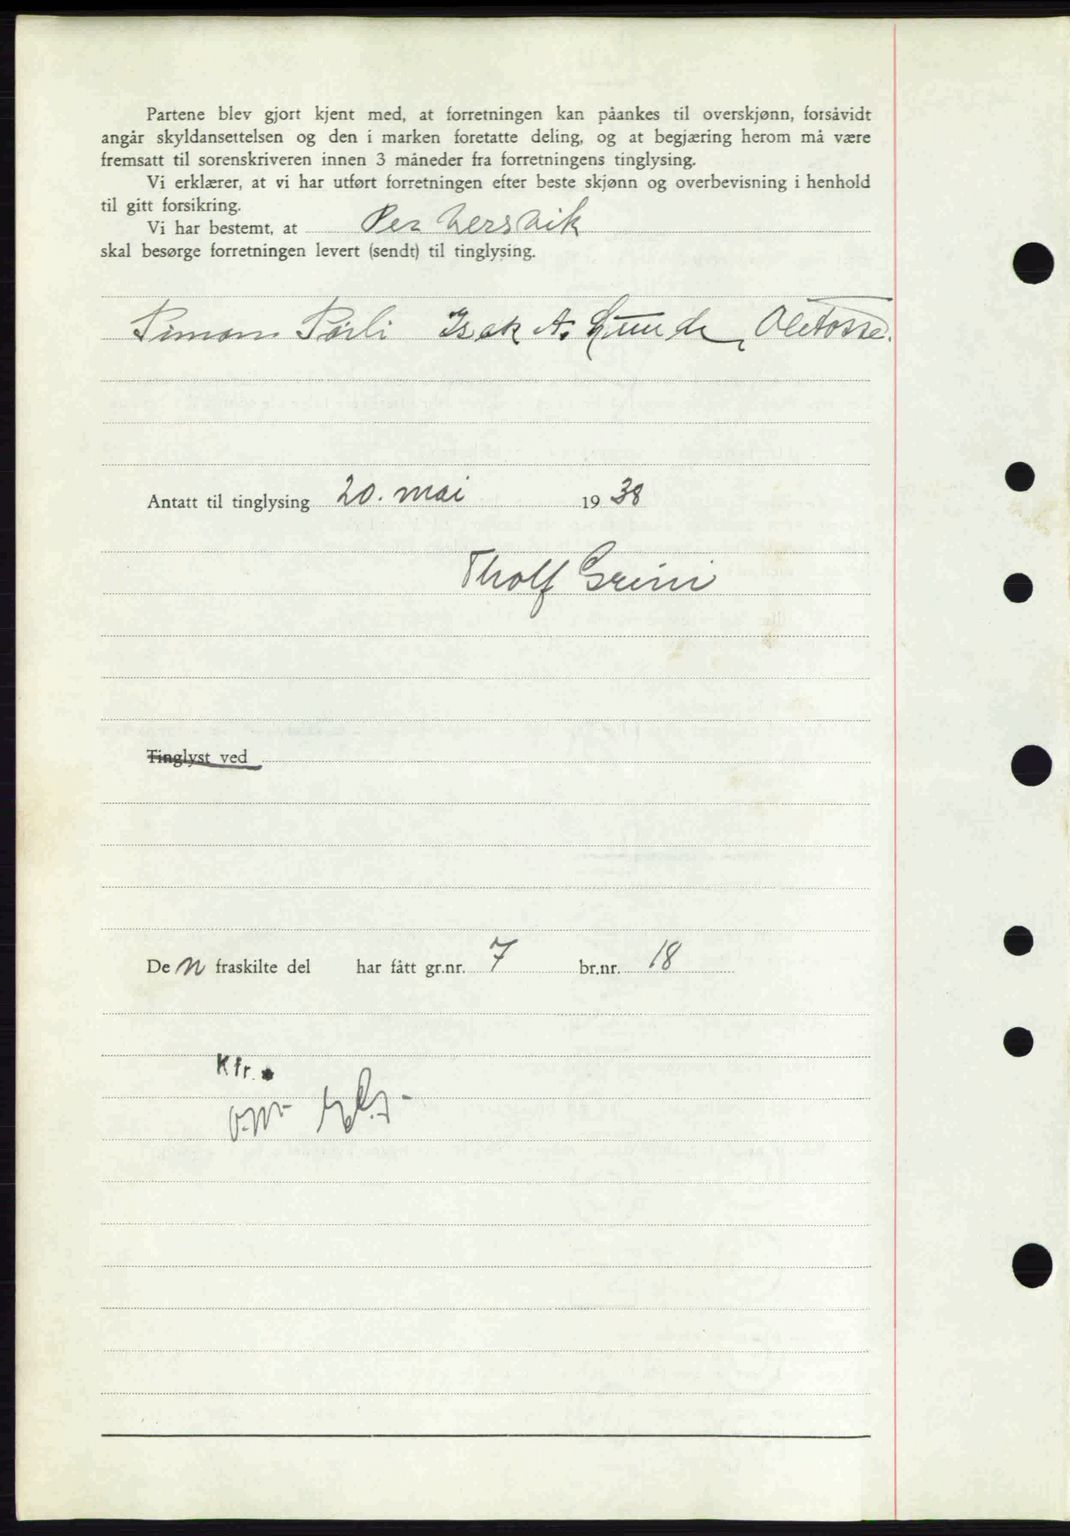 Partene blev gjort kjent med, at forretningen kan påankes til overskjønn, forsåvidt
angår skyldansettelsen og den i marken foretatte deling, og at begjæring herom må være
fremsatt til sorenskriveren innen 3 måneder fra forretningens tinglysing.
Vi erklærer, at vi har utført forretningen efter beste skjønn og overbevisning i henhold
til gitt forsikring.
Vi har bestemt, at Per
skal besørge forretningen levert (sendt) til tinglysing.
Simon Isak A.
Antatt til tinglysing 20. mai 1938
Tholf Grini
Tinglyst ved
De n fraskilte del har fått gr.nr. 7 br.nr. 18
Kfr.